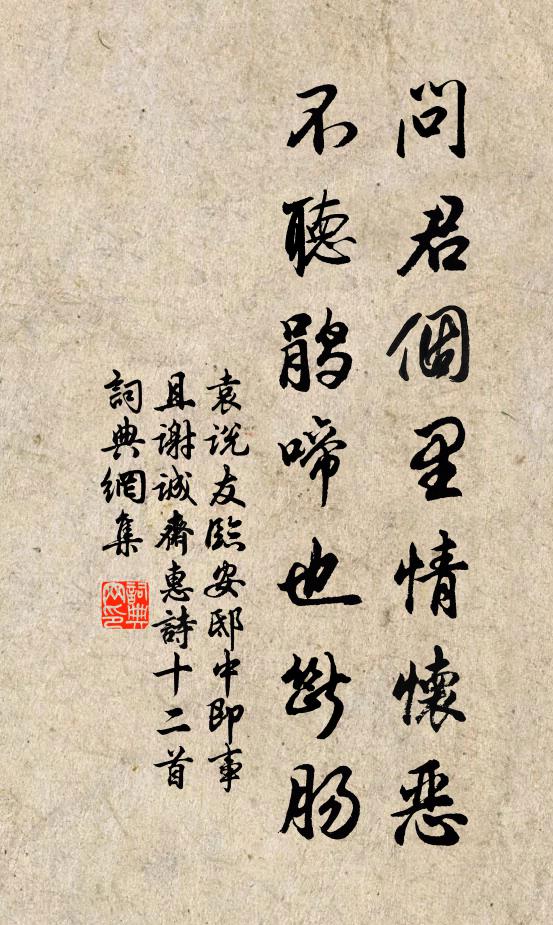 問君個里情懷惡
不聽鵑啼也斷腸
袁说友臨安邸中即事
且谢诚齋惠詩十二首
詞典網集
詞典
网印